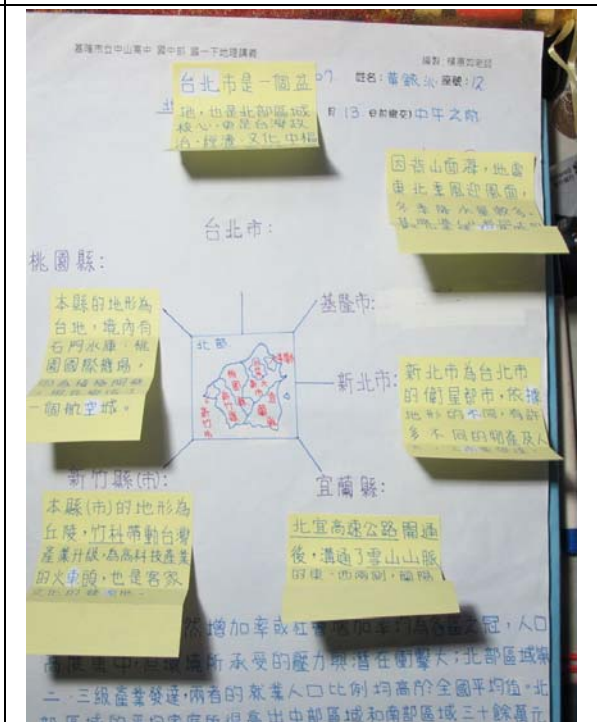 基隆市台中山高中 國中部 國一下地理講義
編製:
姓名:
座號:12
13
中午之前
台北市是一個盆
地,也是北部區域
核心,更是台灣政
治、經濟、文化中樞
因背山面海,地處
東北季風迎風面,
冬季降水量較多,
台北市:
桃園縣:
本縣的地形為
台地,境內有
石門水庫、桃
園國際機場,
一個航空城。
基隆市:
北部
新北市:
新北市為台北市
的衛星都市,依據
地形的不同,有許
多不同的物產及人
新竹縣(市):
本縣(市)的地形為
丘陵,竹科帶動台灣
產業升級,為高科技產業
的火車頭,也是客家
宜蘭縣:
北宜高速公路開通
後,溝通了雪山山脈
的東、西兩側,蘭陽
然增加率或社會增加率均為各區之冠,人口
高度集中,但環境所承受的壓力與潛在衝擊大;北部區域
二、三級產業發達,兩者的就業人口比例均高於全國平均值。北
部區域的平均家庭所得高出中部區域和南部區域三十餘萬元